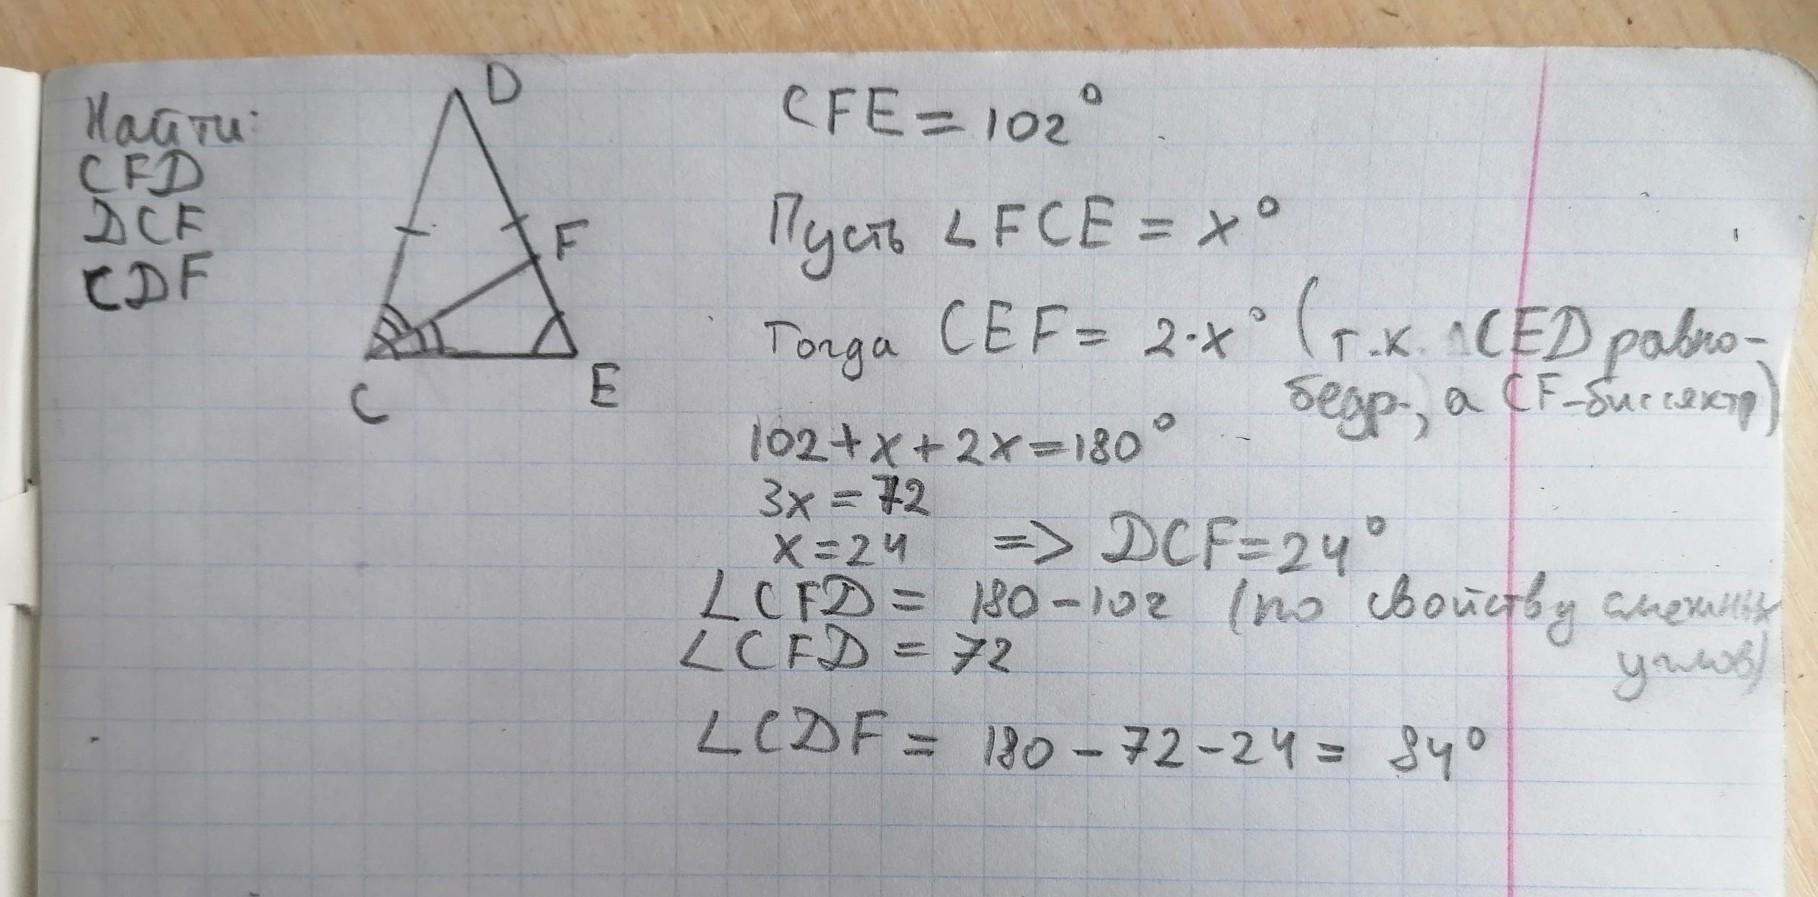 Найти:
CFD
DCF
CDF
D
F
C
E
CFE = 102°
Пусть ∠FCE = x°
Тогда CEF = 2·x° (т.к. CED равно-
бедр., а CF-биссектр)
102+x+2x=180°
3x=72
x=24 => DCF=24°
∠CFD = 180-102 (по свойству смежных
углов)
∠CFD = 72
∠CDF = 180-72-24 = 84°